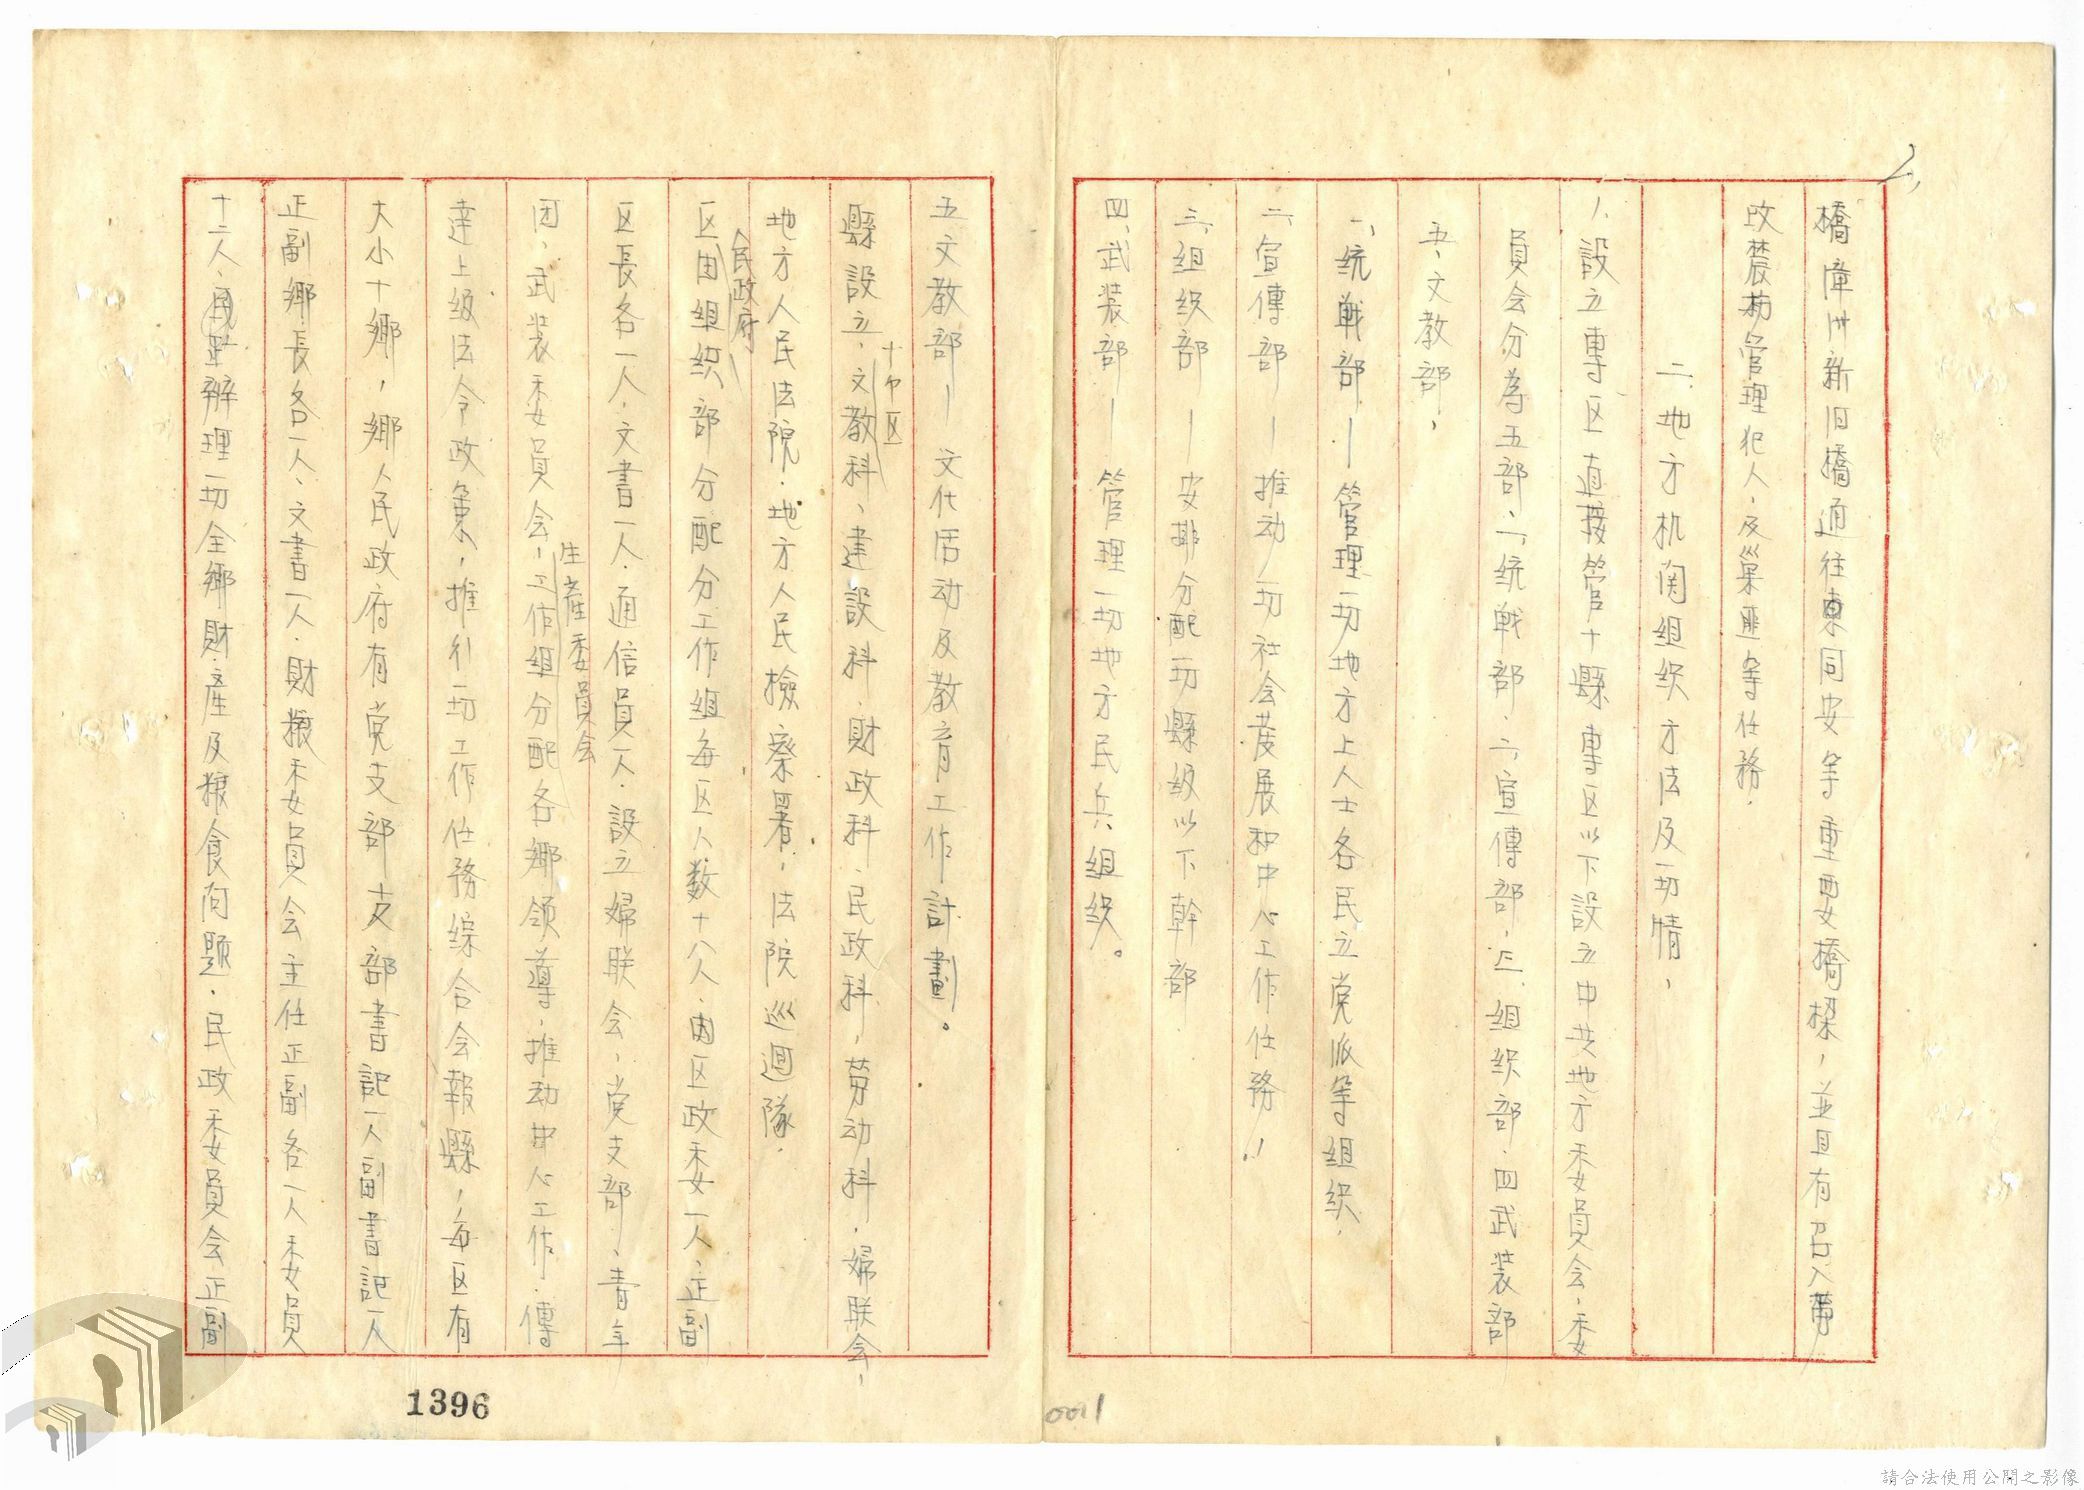 2,
橋漳州新旧橋通往東同安等重要橋樑，並且有召入劳
政農場管理犯人、及巢匪等任務，
二、地方机関组织方法及一切情，
1、設立專区直接管十縣專区以下設立中共地方委員会，委
員会分為五部：一、统戦部、二、宣傳部，三、组织部、四武装部
五、文教部，
一、统戦部—管理一切地方上人士各民立党派等组织，
二、宣傳部—推动一切社会發展和中心工作任務。！
三、组织部—安排分配一切縣級以下幹部.
四、武装部—管理一切地方民兵组织。
五文教部—文化活动及教育工作計劃。
縣設立，十个区文教科、建設科、財政科、民政科，劳动科，婦联会，
地方人民法院、地方人民檢察署，法院巡迴隊.
区人民政府由组织部分配分工作组每区人数十八人、由区政委一人、正副
区長各一人、文書一人、通信員一人、設立婦联会，党支部、青年
团、武装委員会，生產委員会工作组分配各鄉领導，推动中心工作、傳
達上級法令政策，推行一切工作任務綜合会報縣，每区有
大小十鄉，鄉人民政府有党支部支部書記一人副書記一人
正副鄉長各一人、文書一人、財粮委員会主任正副各一人委員
十二人、辦理一切全鄉財產及粮食问题、民政委員会正副
1396
0011
請合法使用公開之影像